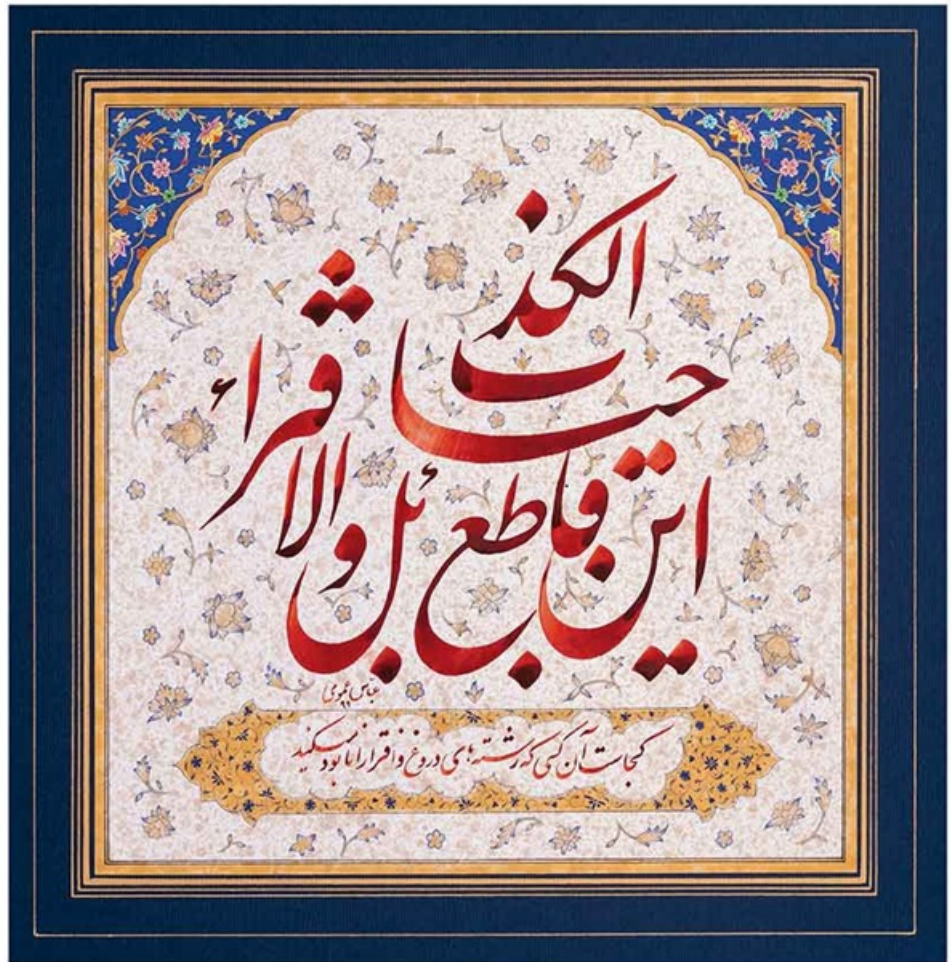 این قاطع حبائل الکذب والافتراء
عباس
کجاست آن کسی که رشته‌های دروغ و افترا را نابود میکند